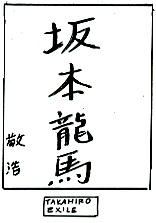 坂本龍馬
敬浩
TAKAHIRO
EXILE